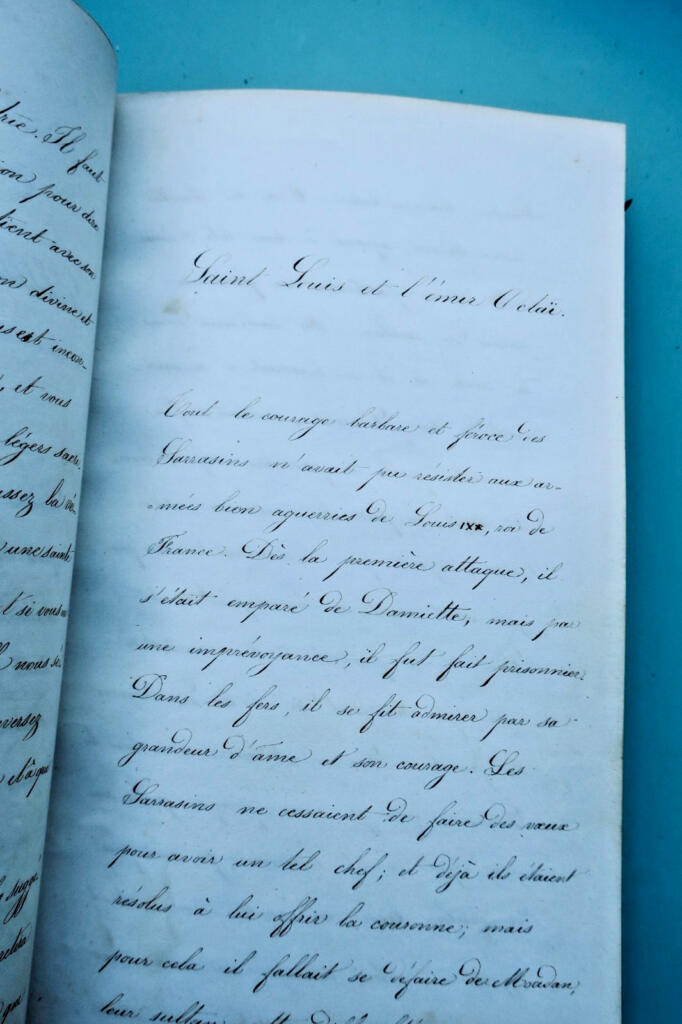 drie. Il faut
ion pour dire
tient avec son
n divine et
est incon-
, et vous
légers sacri
ussez la vé-
une sainte
t si vous
nous sé-
versez
et à qui
suggé
que
Saint Louis et l'émir Octaï.
Tout le courage barbare et féroce des
Sarrasins n'avait pu résister aux ar-
-mées bien aguerries de Louis IX, roi de
France. Dès la première attaque, il
s'était emparé de Damiette, mais par
une imprévoyance, il fut fait prisonnier.
Dans les fers, il se fit admirer par sa
grandeur d'âme et son courage. Les
Sarrasins ne cessaient de faire des vœux
pour avoir un tel chef; et déjà ils étaient
résolus à lui offrir la couronne; mais
pour cela il fallait se défaire de Moadan,
leur sultan